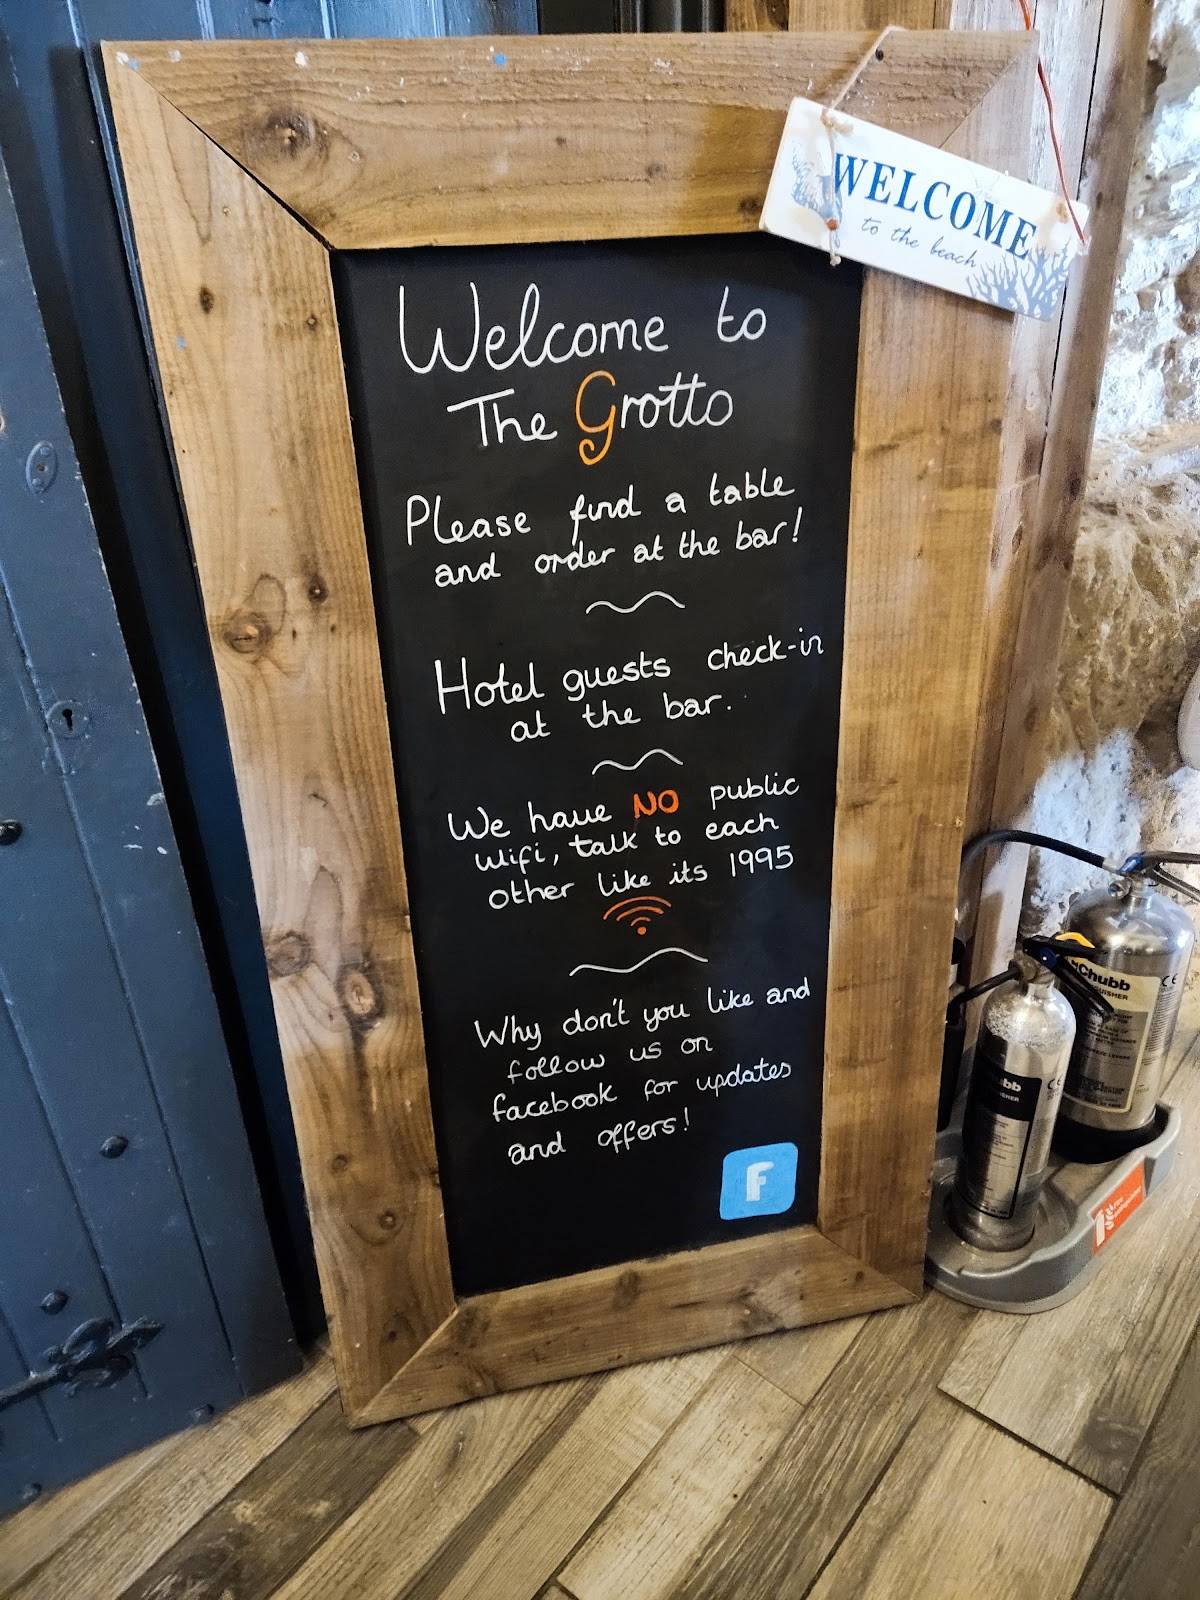 WELCOME
to the beach
Welcome to
The Grotto
Please find a table
and order at the bar!
Hotel guests check-in
at the bar.
We have NO public
Wifi, talk to each
other like its 1995
Why don't you like and
follow us on
facebook for updates
and offers!
F
Chubb